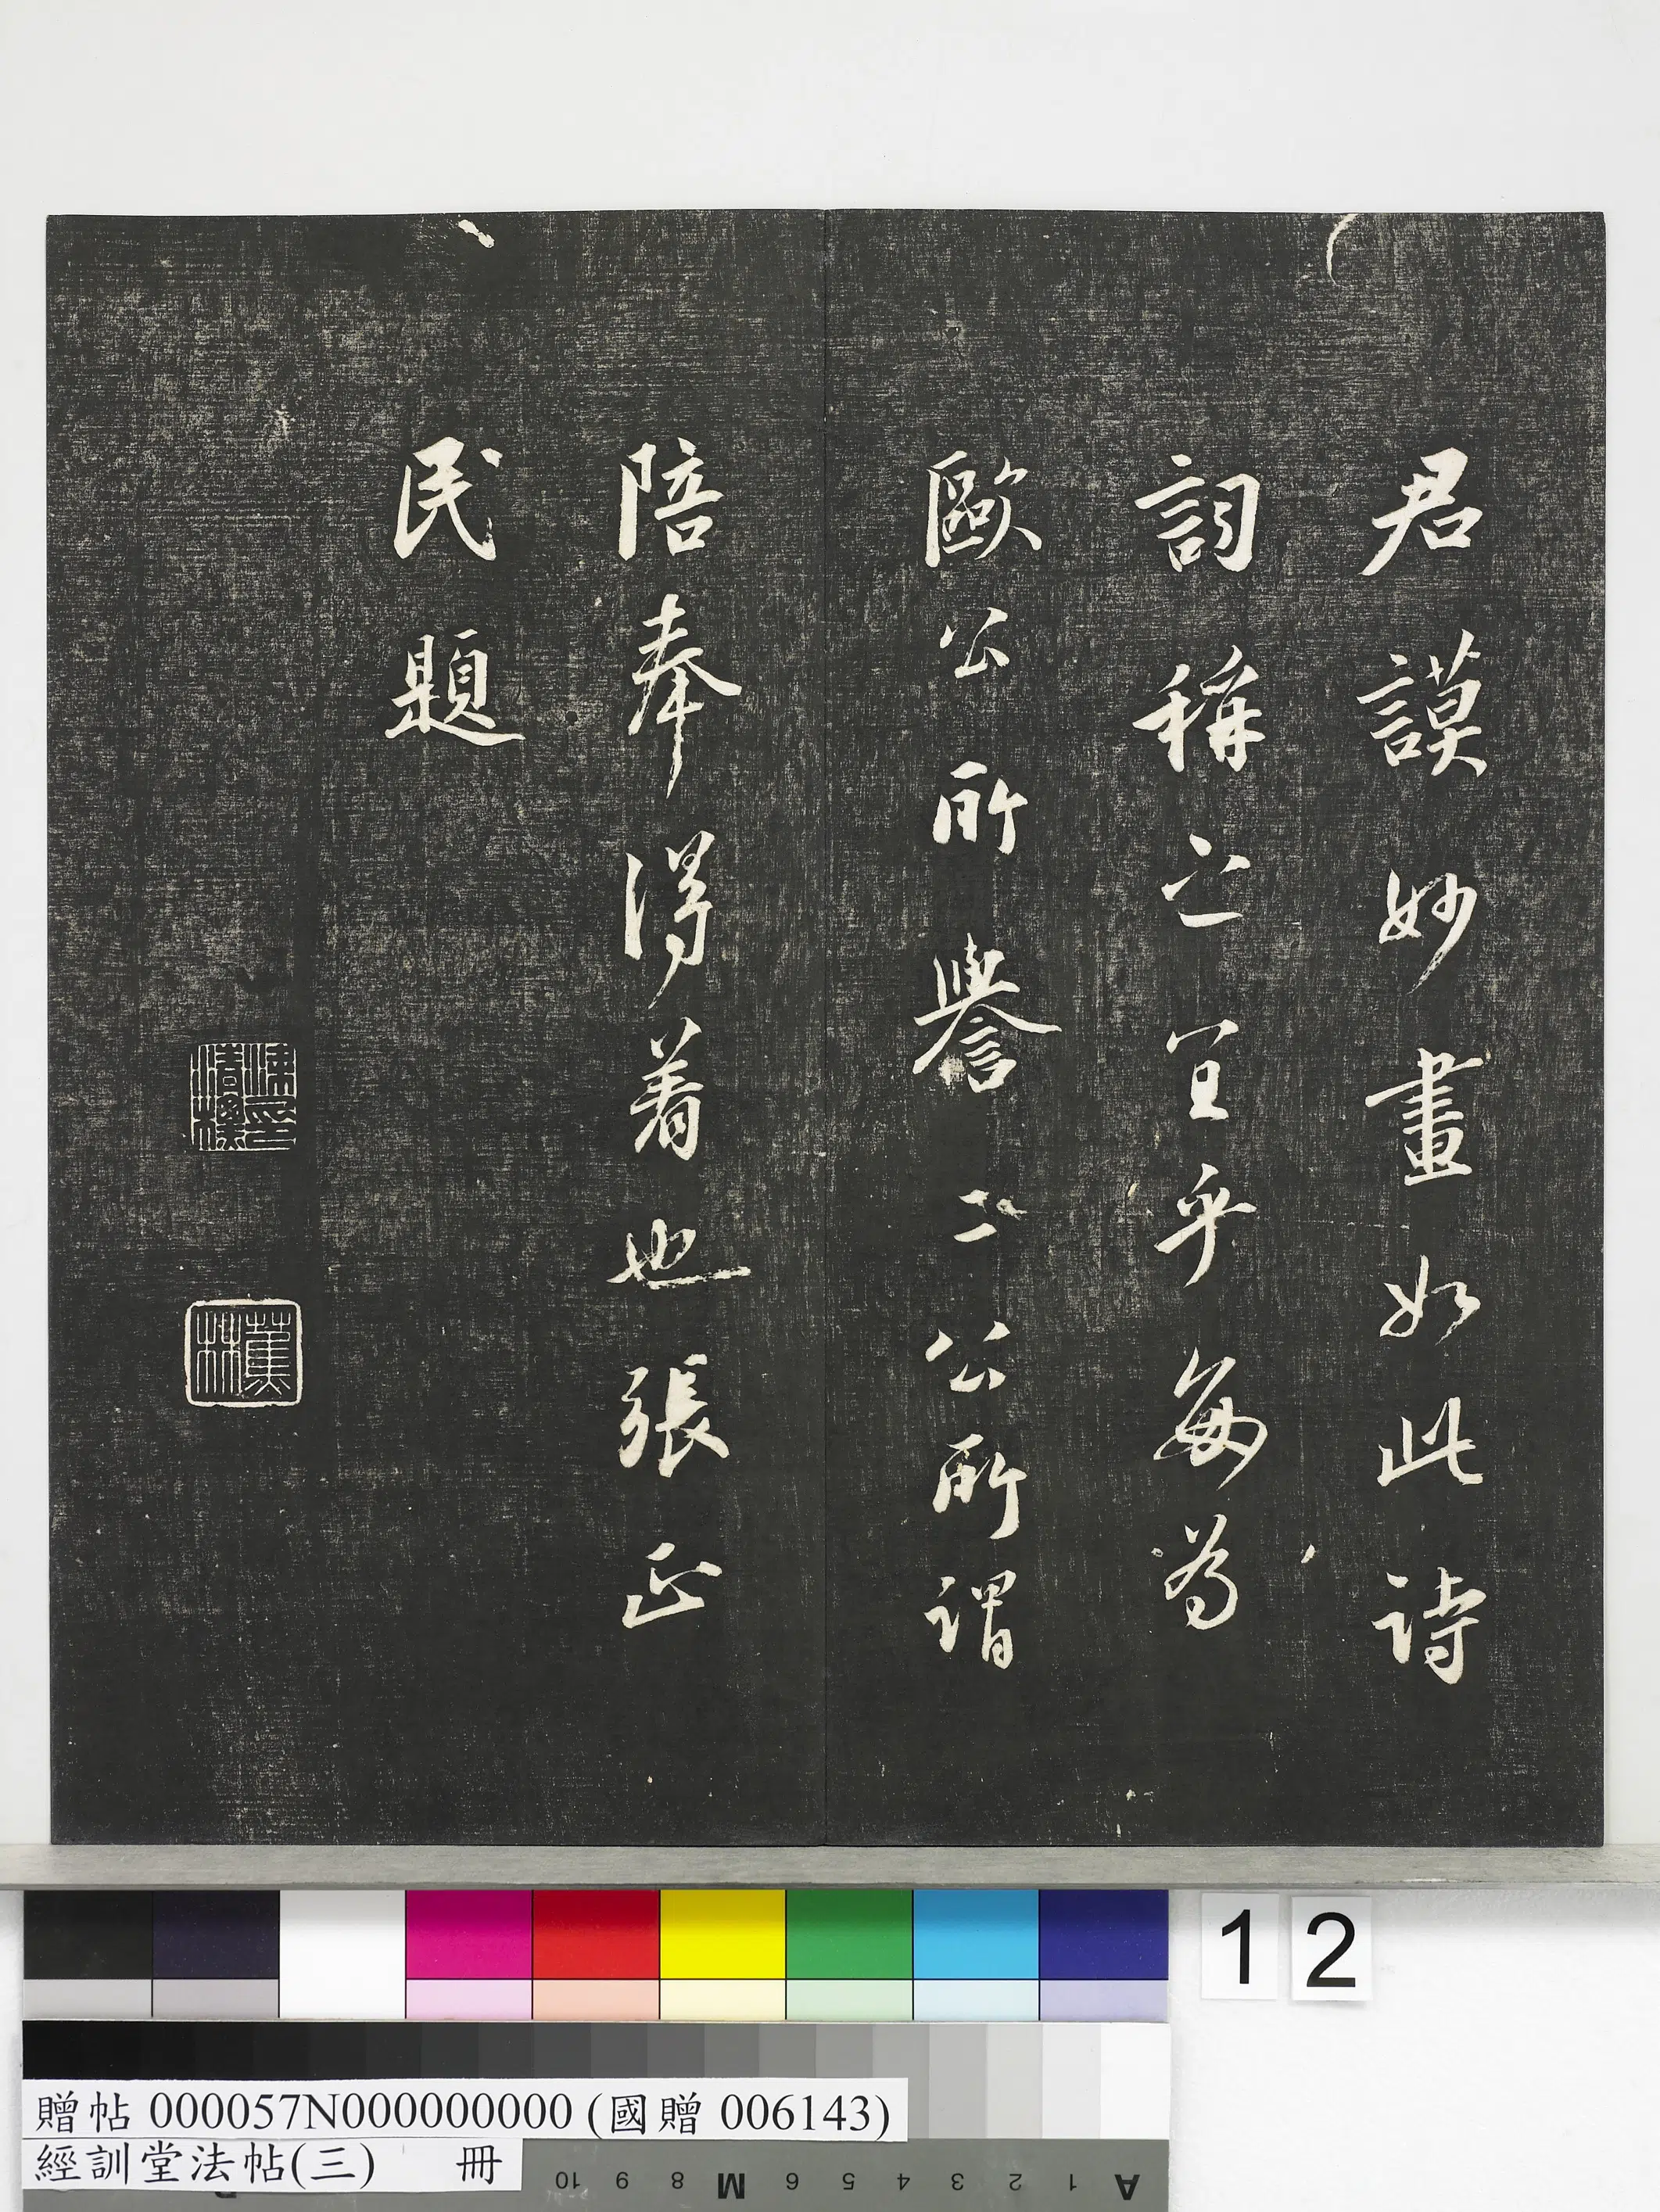 君謨妙畫如此詩
詞稱之宜乎每為
歐公所譽二公所謂
陪奉得着也張正
民題
蕉林
12
贈帖 000057N000000000 (國贈 006143)
經訓堂法帖(三) 冊
10 9 8 M 6 5 4 3 2 1 A